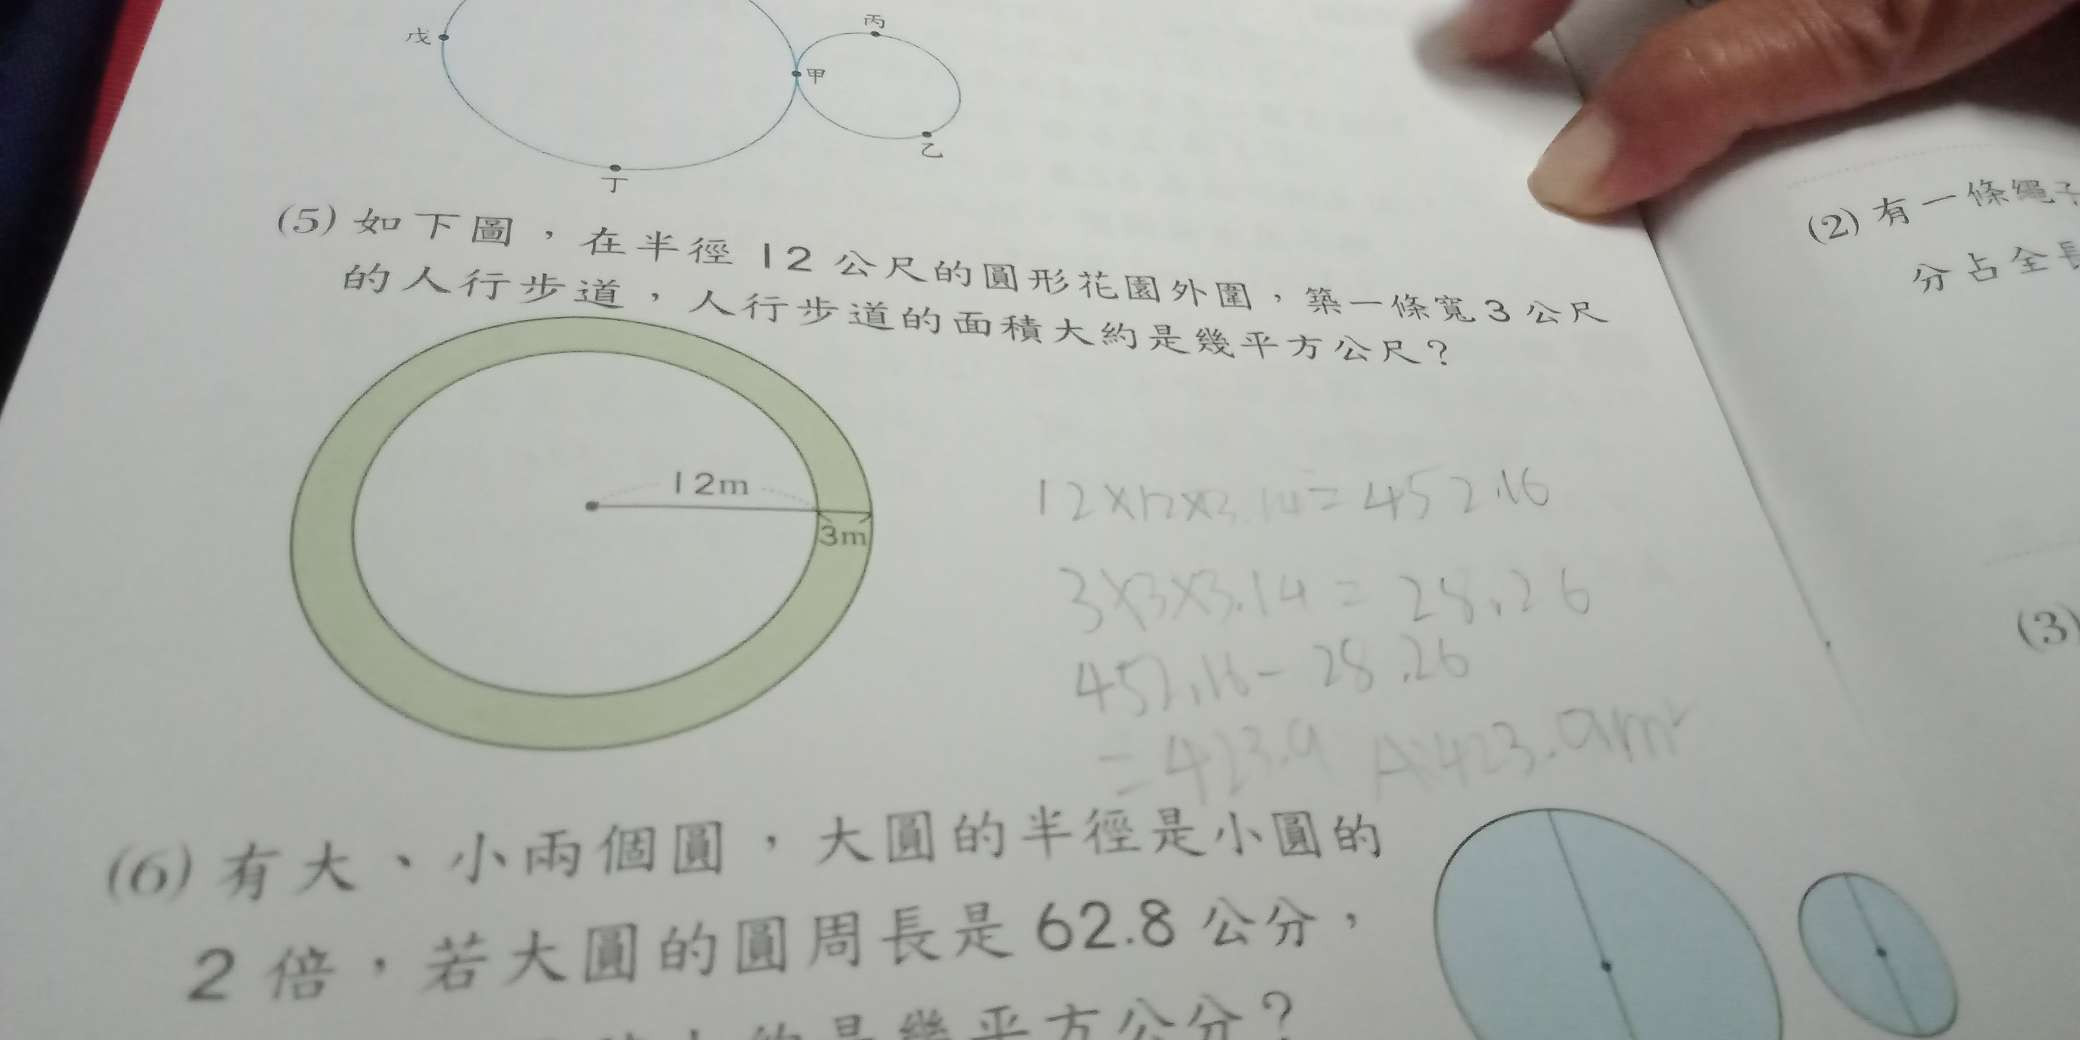 戊
丙
甲
乙
丁
(5) 如下圖，在半徑 12 公尺的圓形花園外圍，築一條寬 3 公尺
的人行步道，人行步道的面積大約是幾平方公尺？
12m
3m
12×12×3.14=452.16
3×3×3.14=28.26
452.16-28.26
=423.9 A:423.9m²
(6) 有大、小兩個圓，大圓的半徑是小圓的
2 倍，若大圓的圓周長是 62.8 公分，
是幾平方公分？
(2) 有一條繩子
分占全長
(3)